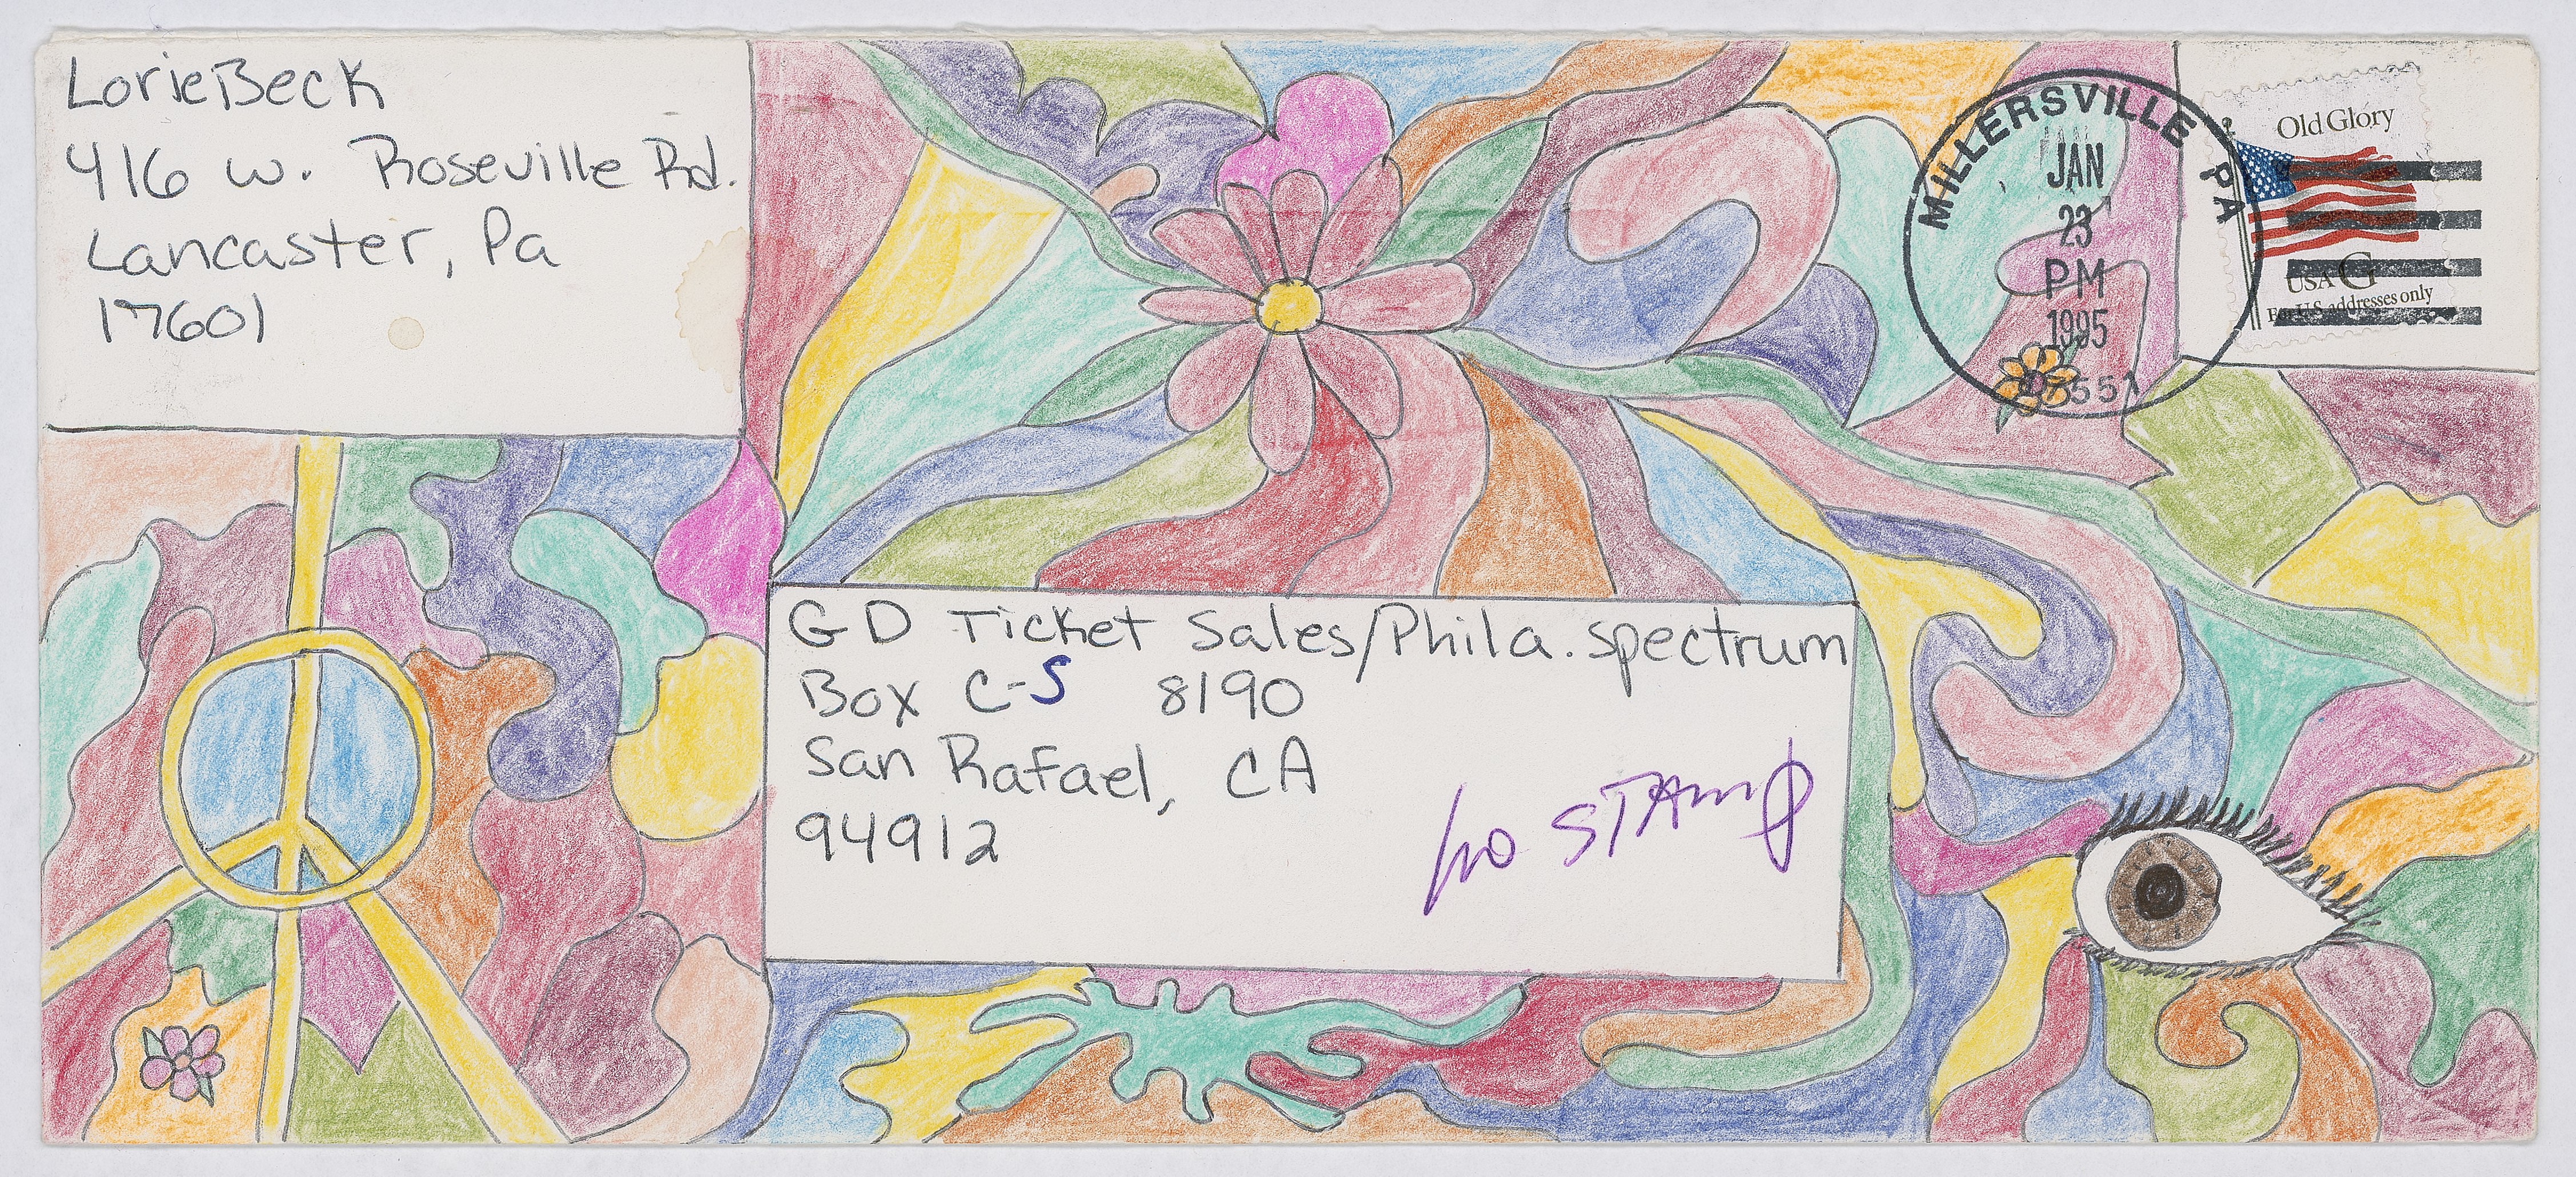 LorieBeck
416 w. Roseville Rd.
Lancaster, Pa
17601
MILLERSVILLE PA
JAN
23
PM
1995
17551
Old Glory
USA G
For U.S. addresses only
GD Ticket Sales/Phila. Spectrum
Box C-S 8190
San Rafael, CA
94912
no STAMP